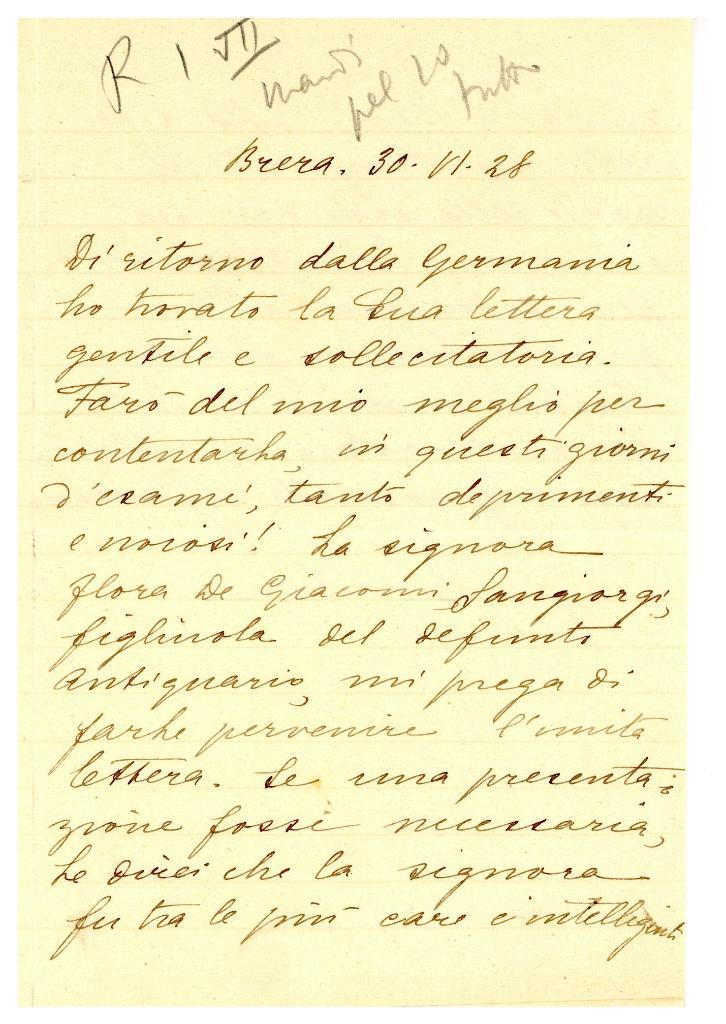 R 1 VII
mandi
pel 10
tutto
Brera. 30. VI. 28
Di ritorno dalla Germania
ho trovato la Sua lettera
gentile e sollecitatoria.
Farò del mio meglio per
contentarLa, in questi giorni
d'esami, tanto deprimenti
e noiosi! La signora
Flora De Giacomi Sangiorgi,
figliuola del defunto
antiquario, mi prega di
farLe pervenire l'unita
lettera. Se una presenta-
zione fosse necessaria,
Le direi che la signora
fu tra le più care e intelligenti